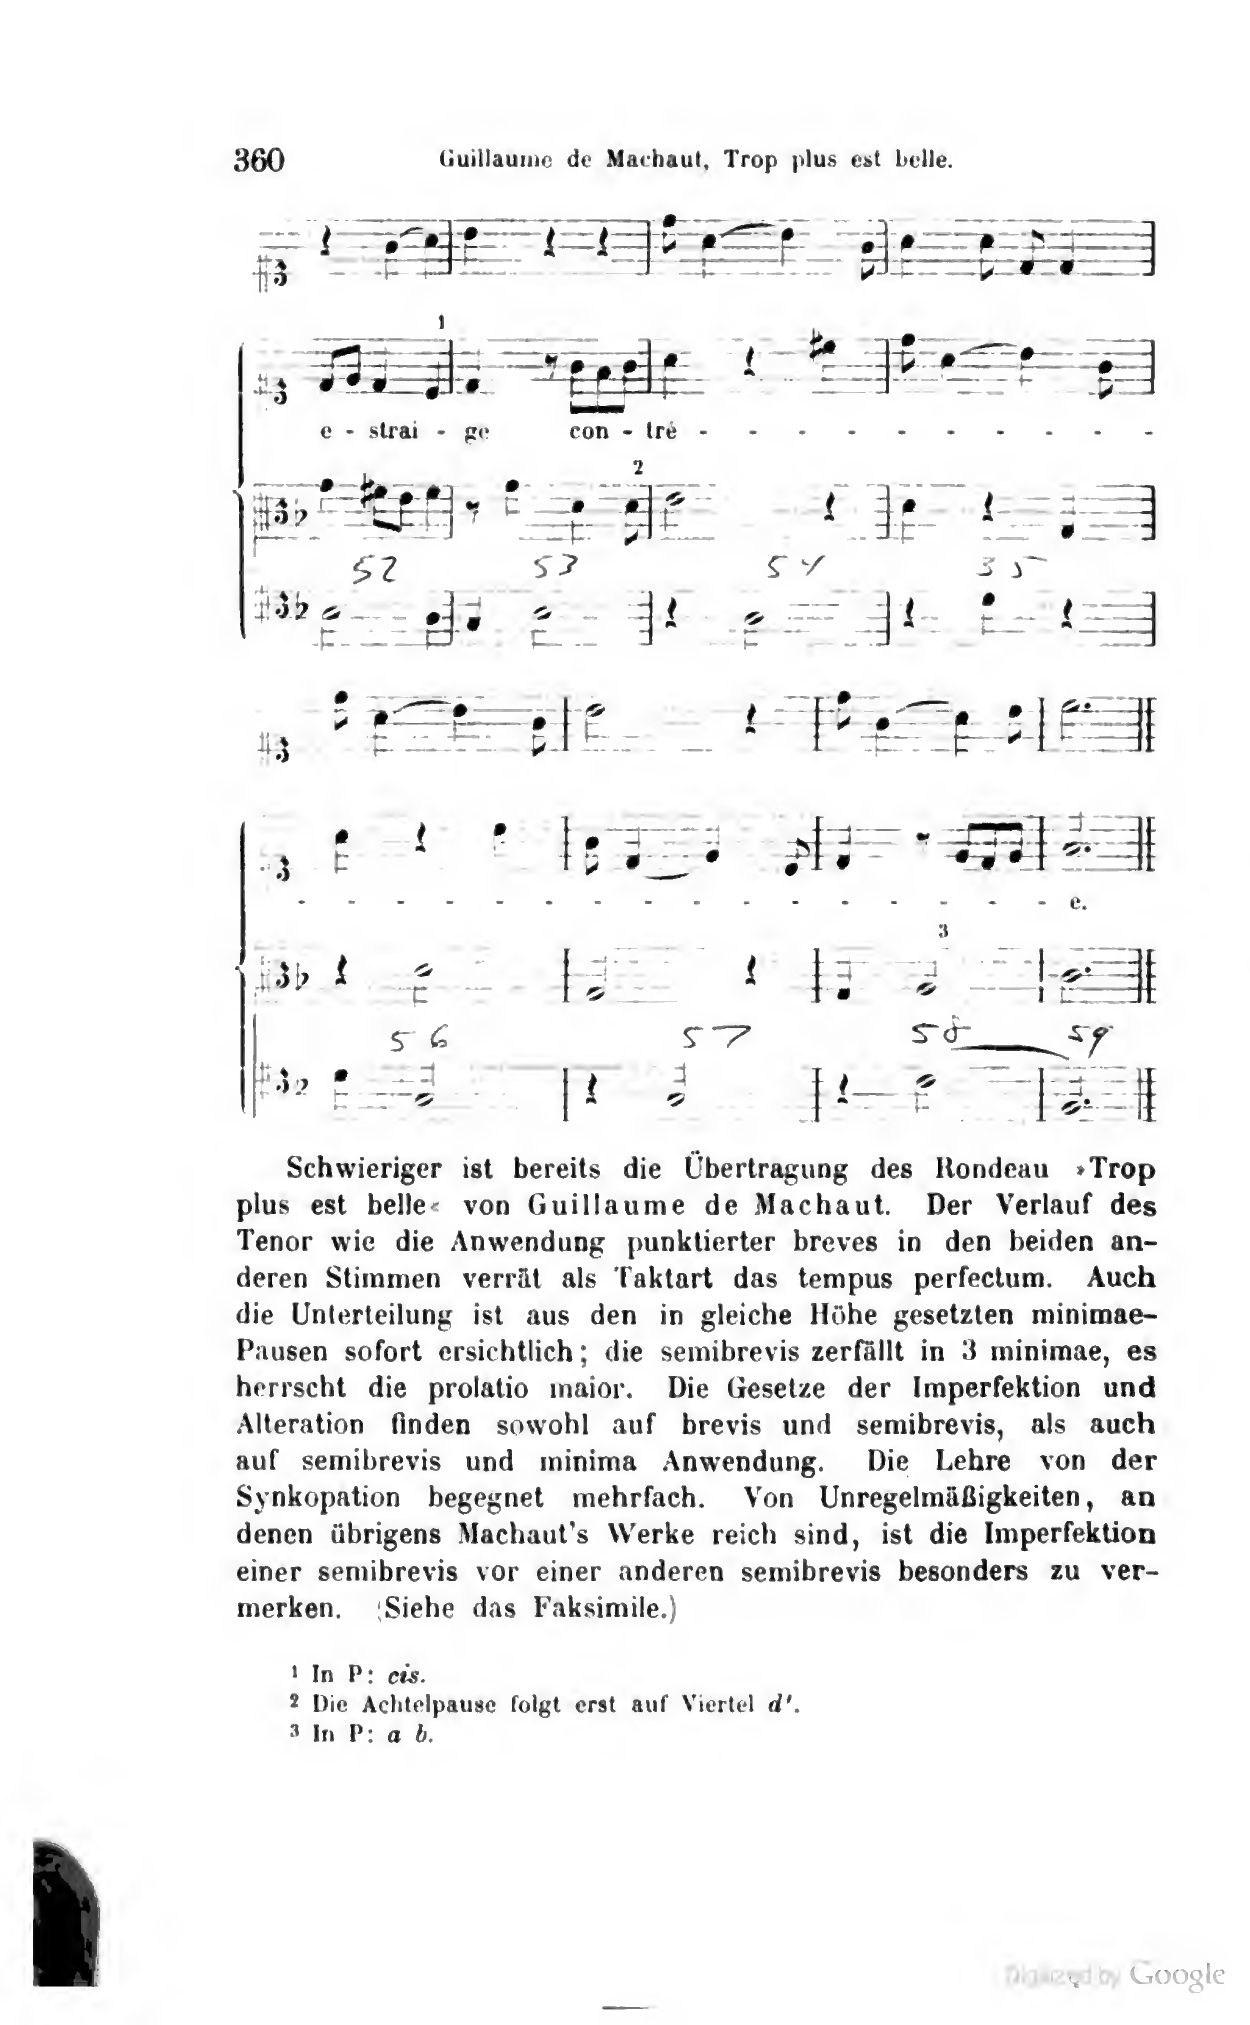 360
Guillaume de Machaut, Trop plus est belle.
1
e - strai - ge con - tré - - - - - - - - - -
2
52 53 54 55
- - - - - - - - - - - - - - - - e.
3
56 57 58 59
Schwieriger ist bereits die Übertragung des Rondeau »Trop
plus est belle« von Guillaume de Machaut. Der Verlauf des
Tenor wie die Anwendung punktierter breves in den beiden an-
deren Stimmen verrät als Taktart das tempus perfectum. Auch
die Unterteilung ist aus den in gleiche Höhe gesetzten minimae-
Pausen sofort ersichtlich; die semibrevis zerfällt in 3 minimae, es
herrscht die prolatio maior. Die Gesetze der Imperfektion und
Alteration finden sowohl auf brevis und semibrevis, als auch
auf semibrevis und minima Anwendung. Die Lehre von der
Synkopation begegnet mehrfach. Von Unregelmäßigkeiten, an
denen übrigens Machaut's Werke reich sind, ist die Imperfektion
einer semibrevis vor einer anderen semibrevis besonders zu ver-
merken. (Siehe das Faksimile.)
1 In P: cis.
2 Die Achtelpause folgt erst auf Viertel d'.
3 In P: a b.
Digitized by Google